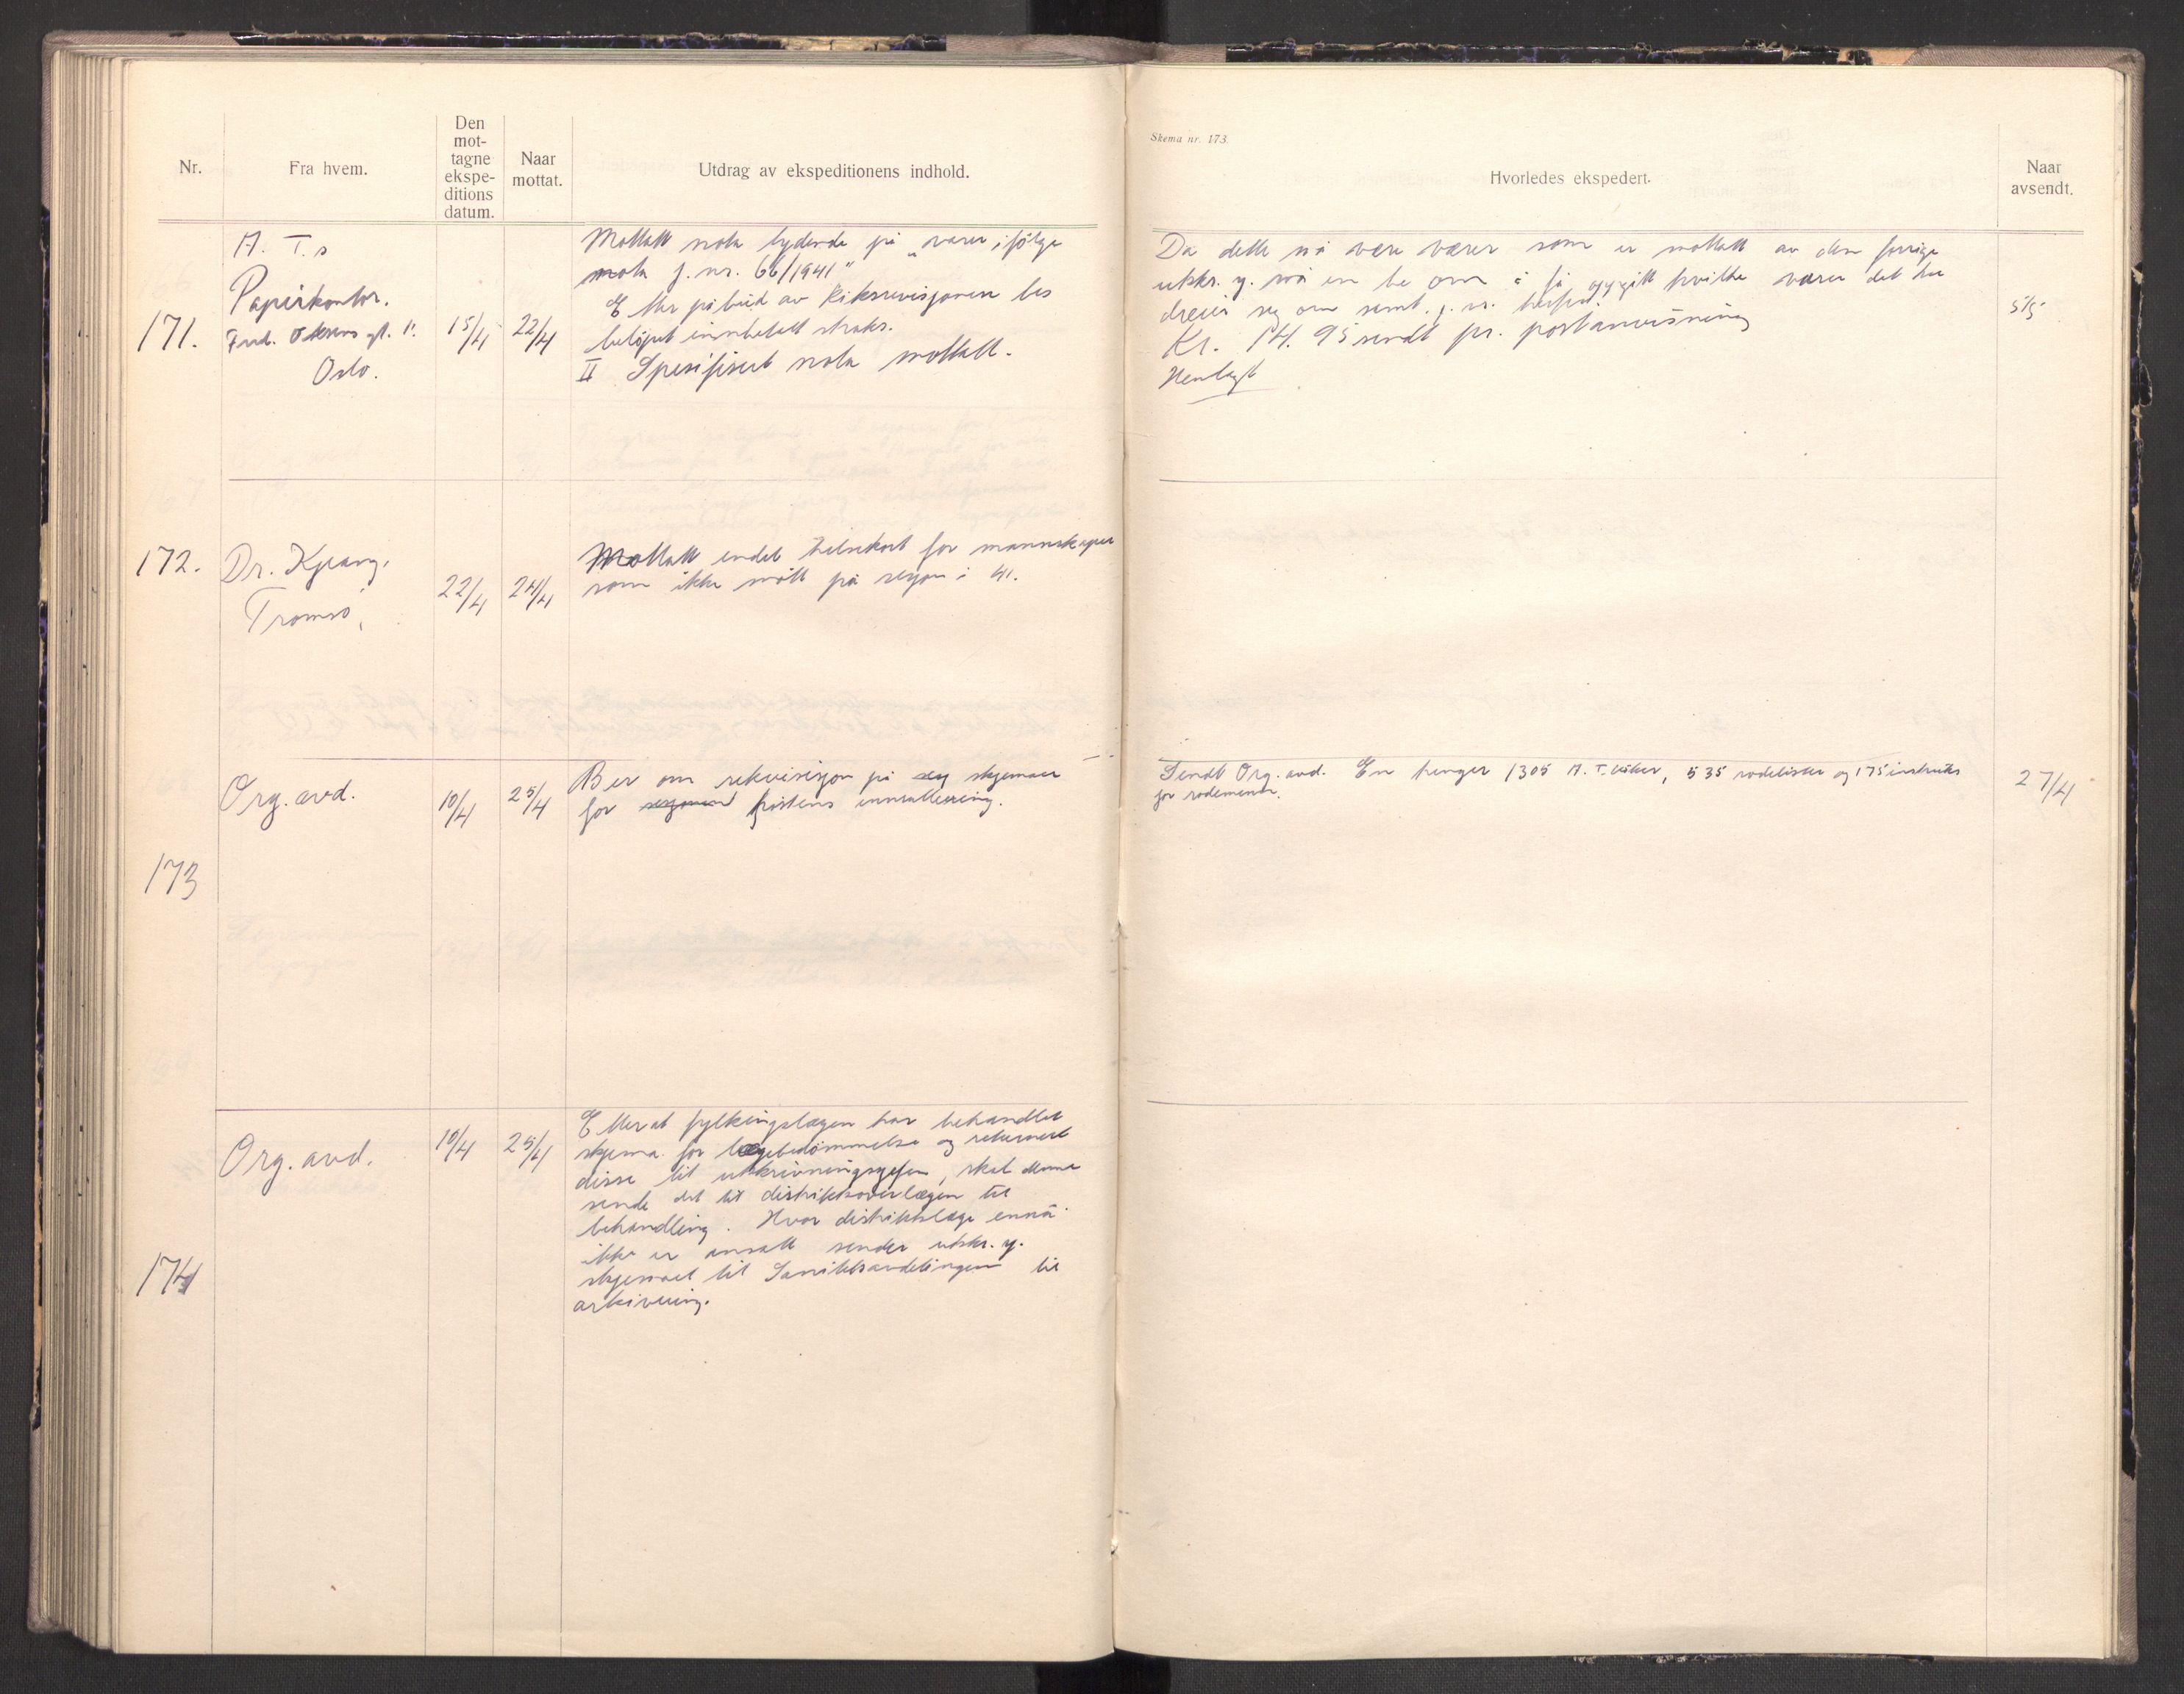 Nr.
Fra hvem.
Den
mot-
tagne
ekspe-
ditions
datum.
Naar
mottat.
Utdrag av ekspeditionens indhold.
Skema nr. 173.
Hvorledes ekspedert.
Naar
avsendt.
171.
A. T.s
Papirkontor.
Oslo.
15/4
22/4
Mottatt nota lydende på „varer ifölge
nota j. nr. 66/1941"
Etter påbud av Riksrevisjonen bes
belöpet innbetalt straks.
II Spesifisert nota mottatt.
Da dette må være varer som er mottatt av den forrige
utskr. g. må en be om å få oppgitt hvilke varer det her
dreier seg om samt j. nr.
Kr. 14.95 sendt pr. postanvisning
Henlagt
5/5
172.
Dr. Kjeang.
Tromsö.
22/4
24/4
Mottatt endel helsekort for mannskaper
som ikke mött på sesjon i 41.
173
Org. avd.
10/4
25/4
Ber om rekvisisjon på skjemaer
for höstens innrullering.
Sendt Org. avd. En trenger 1305 A. T. böker, 535 rodelister og 175 instruks
for rodemenn.
27/4
174
Org. avd.
10/4
25/4
Etterat fylkingslægen har behandlet
skjema for lægebedömmelse og returnert
disse til utskrivningssjefen, skal denne
sende det til distriktsoverlægen til
behandling. Hvor distriktslæge ennå
ikke er ansatt sender utskr. g.
skjemaet til Sanitetsavdelingen til
arkivering.